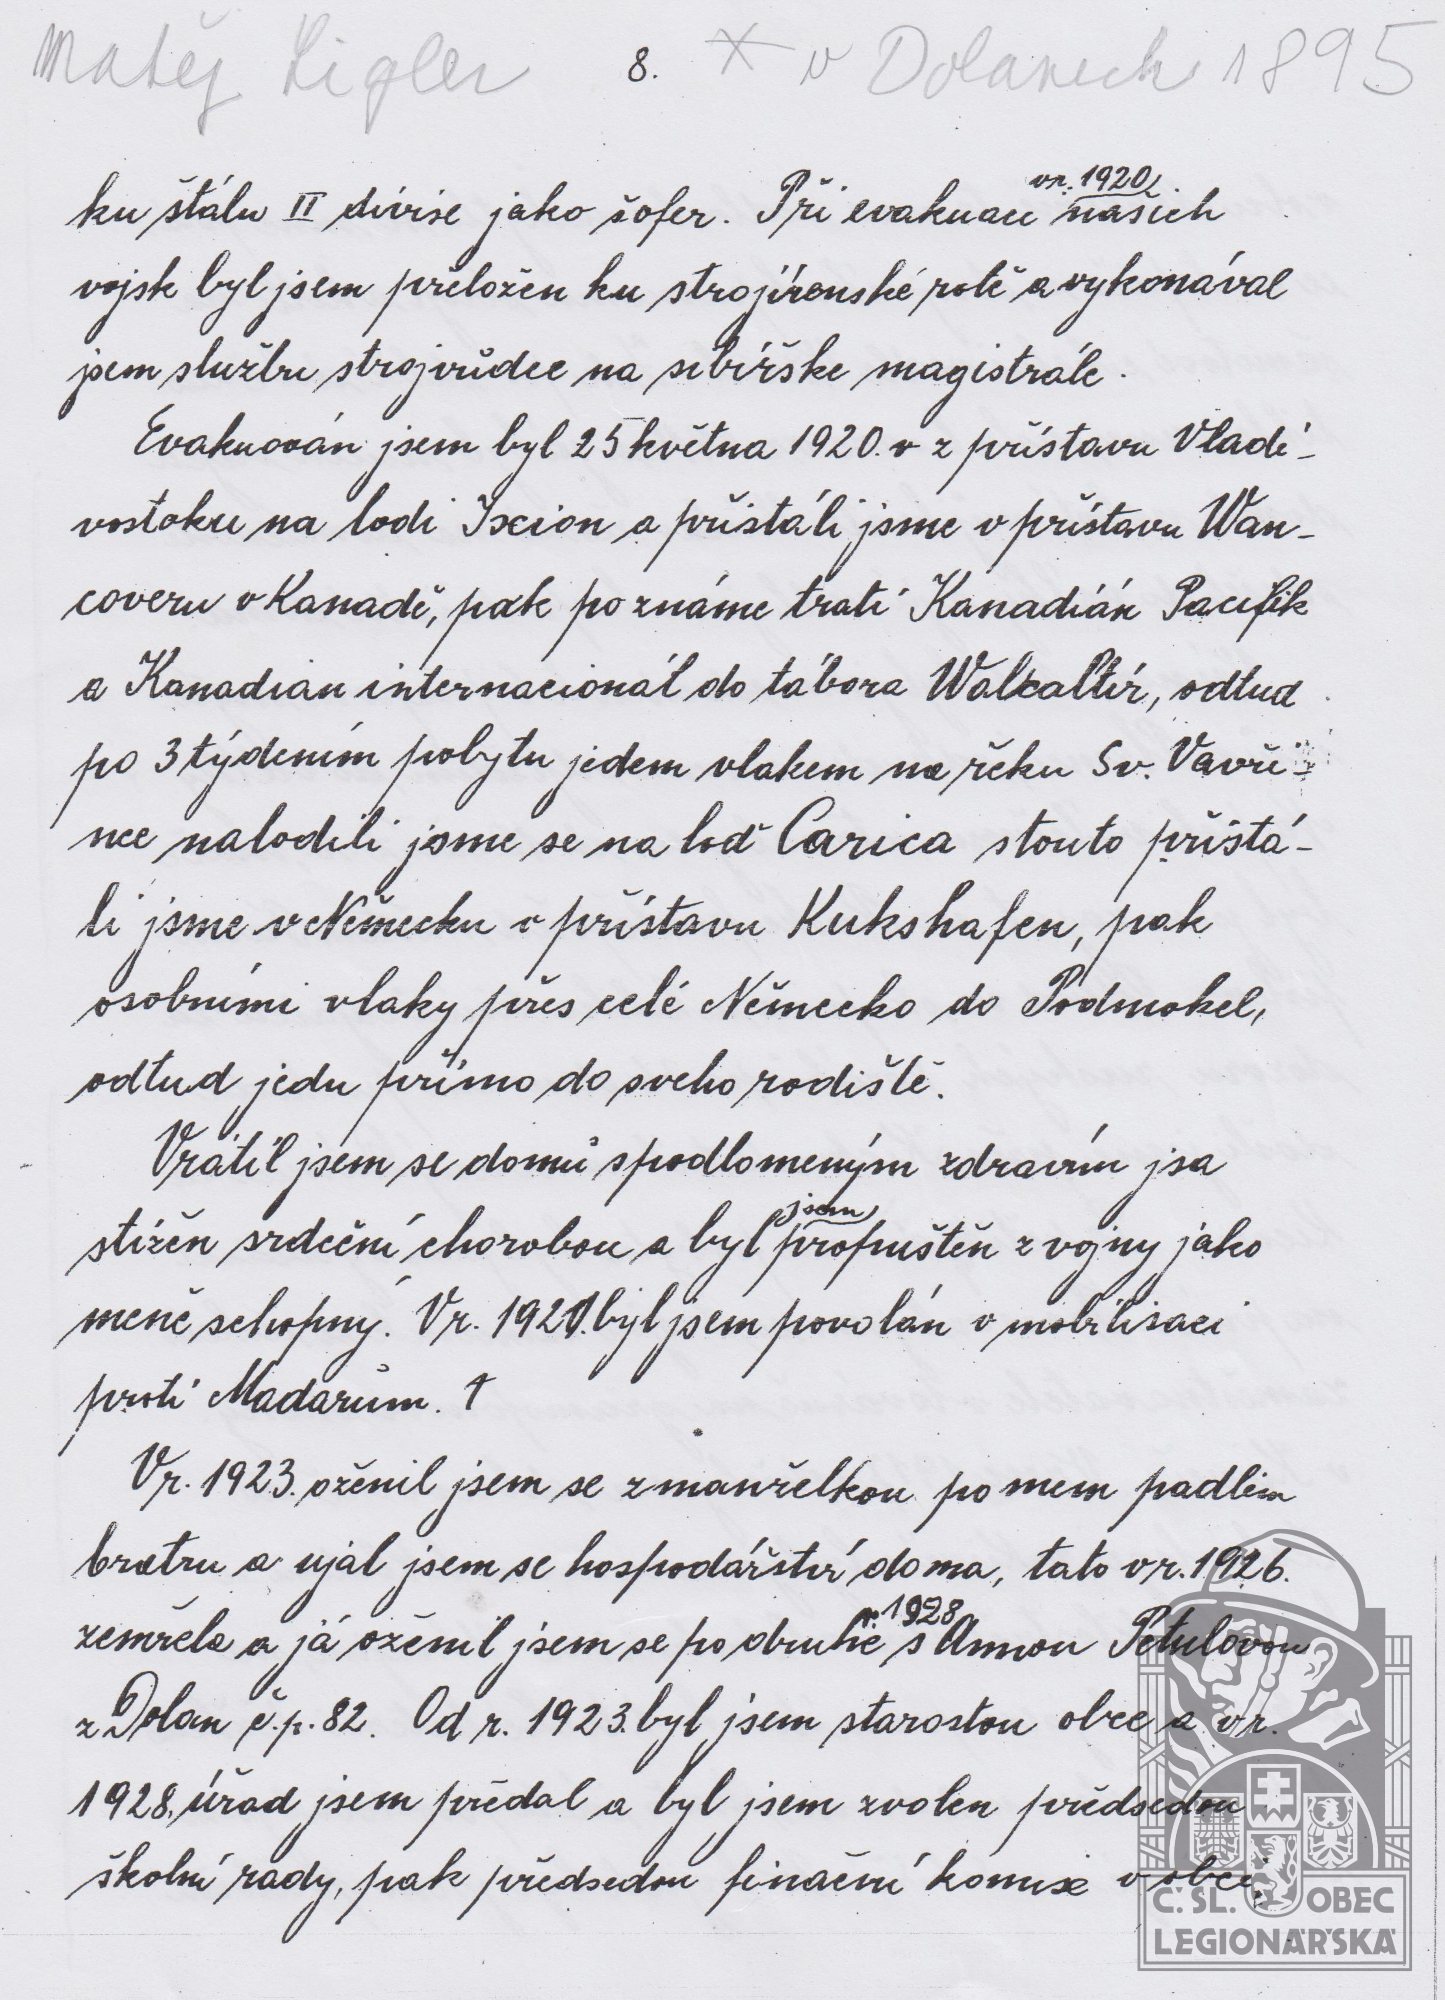 Matěj Ligler 8. X v Dolanech 1895
vr. 1920
ku štálu II divise jako šofer. Při evakuaci našich
vojsk byl jsem přeložen ku strojírenské rotě a vykonával
jsem službu strojvůdce na sibířske magistrále.
Evakuován jsem byl 25 května 1920. v z přístavu Vladi-
vostoku na lodi Ixion a přistáli jsme v přístavu Wan-
coveru v Kanadě, pak po známe trati Kanadián Pacifik
a Kanadian internacionál do tábora Walkaltír, odtud
po 3 týdením pobytu jedem vlakem na řeku Sv. Vavři-
nce nalodili jsme se na loď Carica stouto přistá-
li jsme v Německu v přístavu Kukshafen, pak
osobními vlaky přes celé Německo do Podmokel,
odtud jedu přímo do sveho rodiště.
Vrátil jsem se domů spodlomeným zdravím jsa
jsem
stižen srdeční chorobou a byl propuštěn z vojny jako
méně schopný. Vr. 1921. byl jsem povolán v mobilisaci
proti Madarům. †
Vr. 1923. oženil jsem se z manželkou po mem padlím
bratru a ujal jsem se hospodářství doma, tato vr. 1926.
r. 1928
zemřela a já oženil jsem se po druhé s Annou Petulovou
z Dolan č.p. 82. Od r. 1923. byl jsem starostou obce a vr.
1928. úřad jsem předal a byl jsem zvolen předsedou
školní rady, pak předsedou finační komise v obci,
Č. SL. OBEC
LEGIONÁŘSKÁ